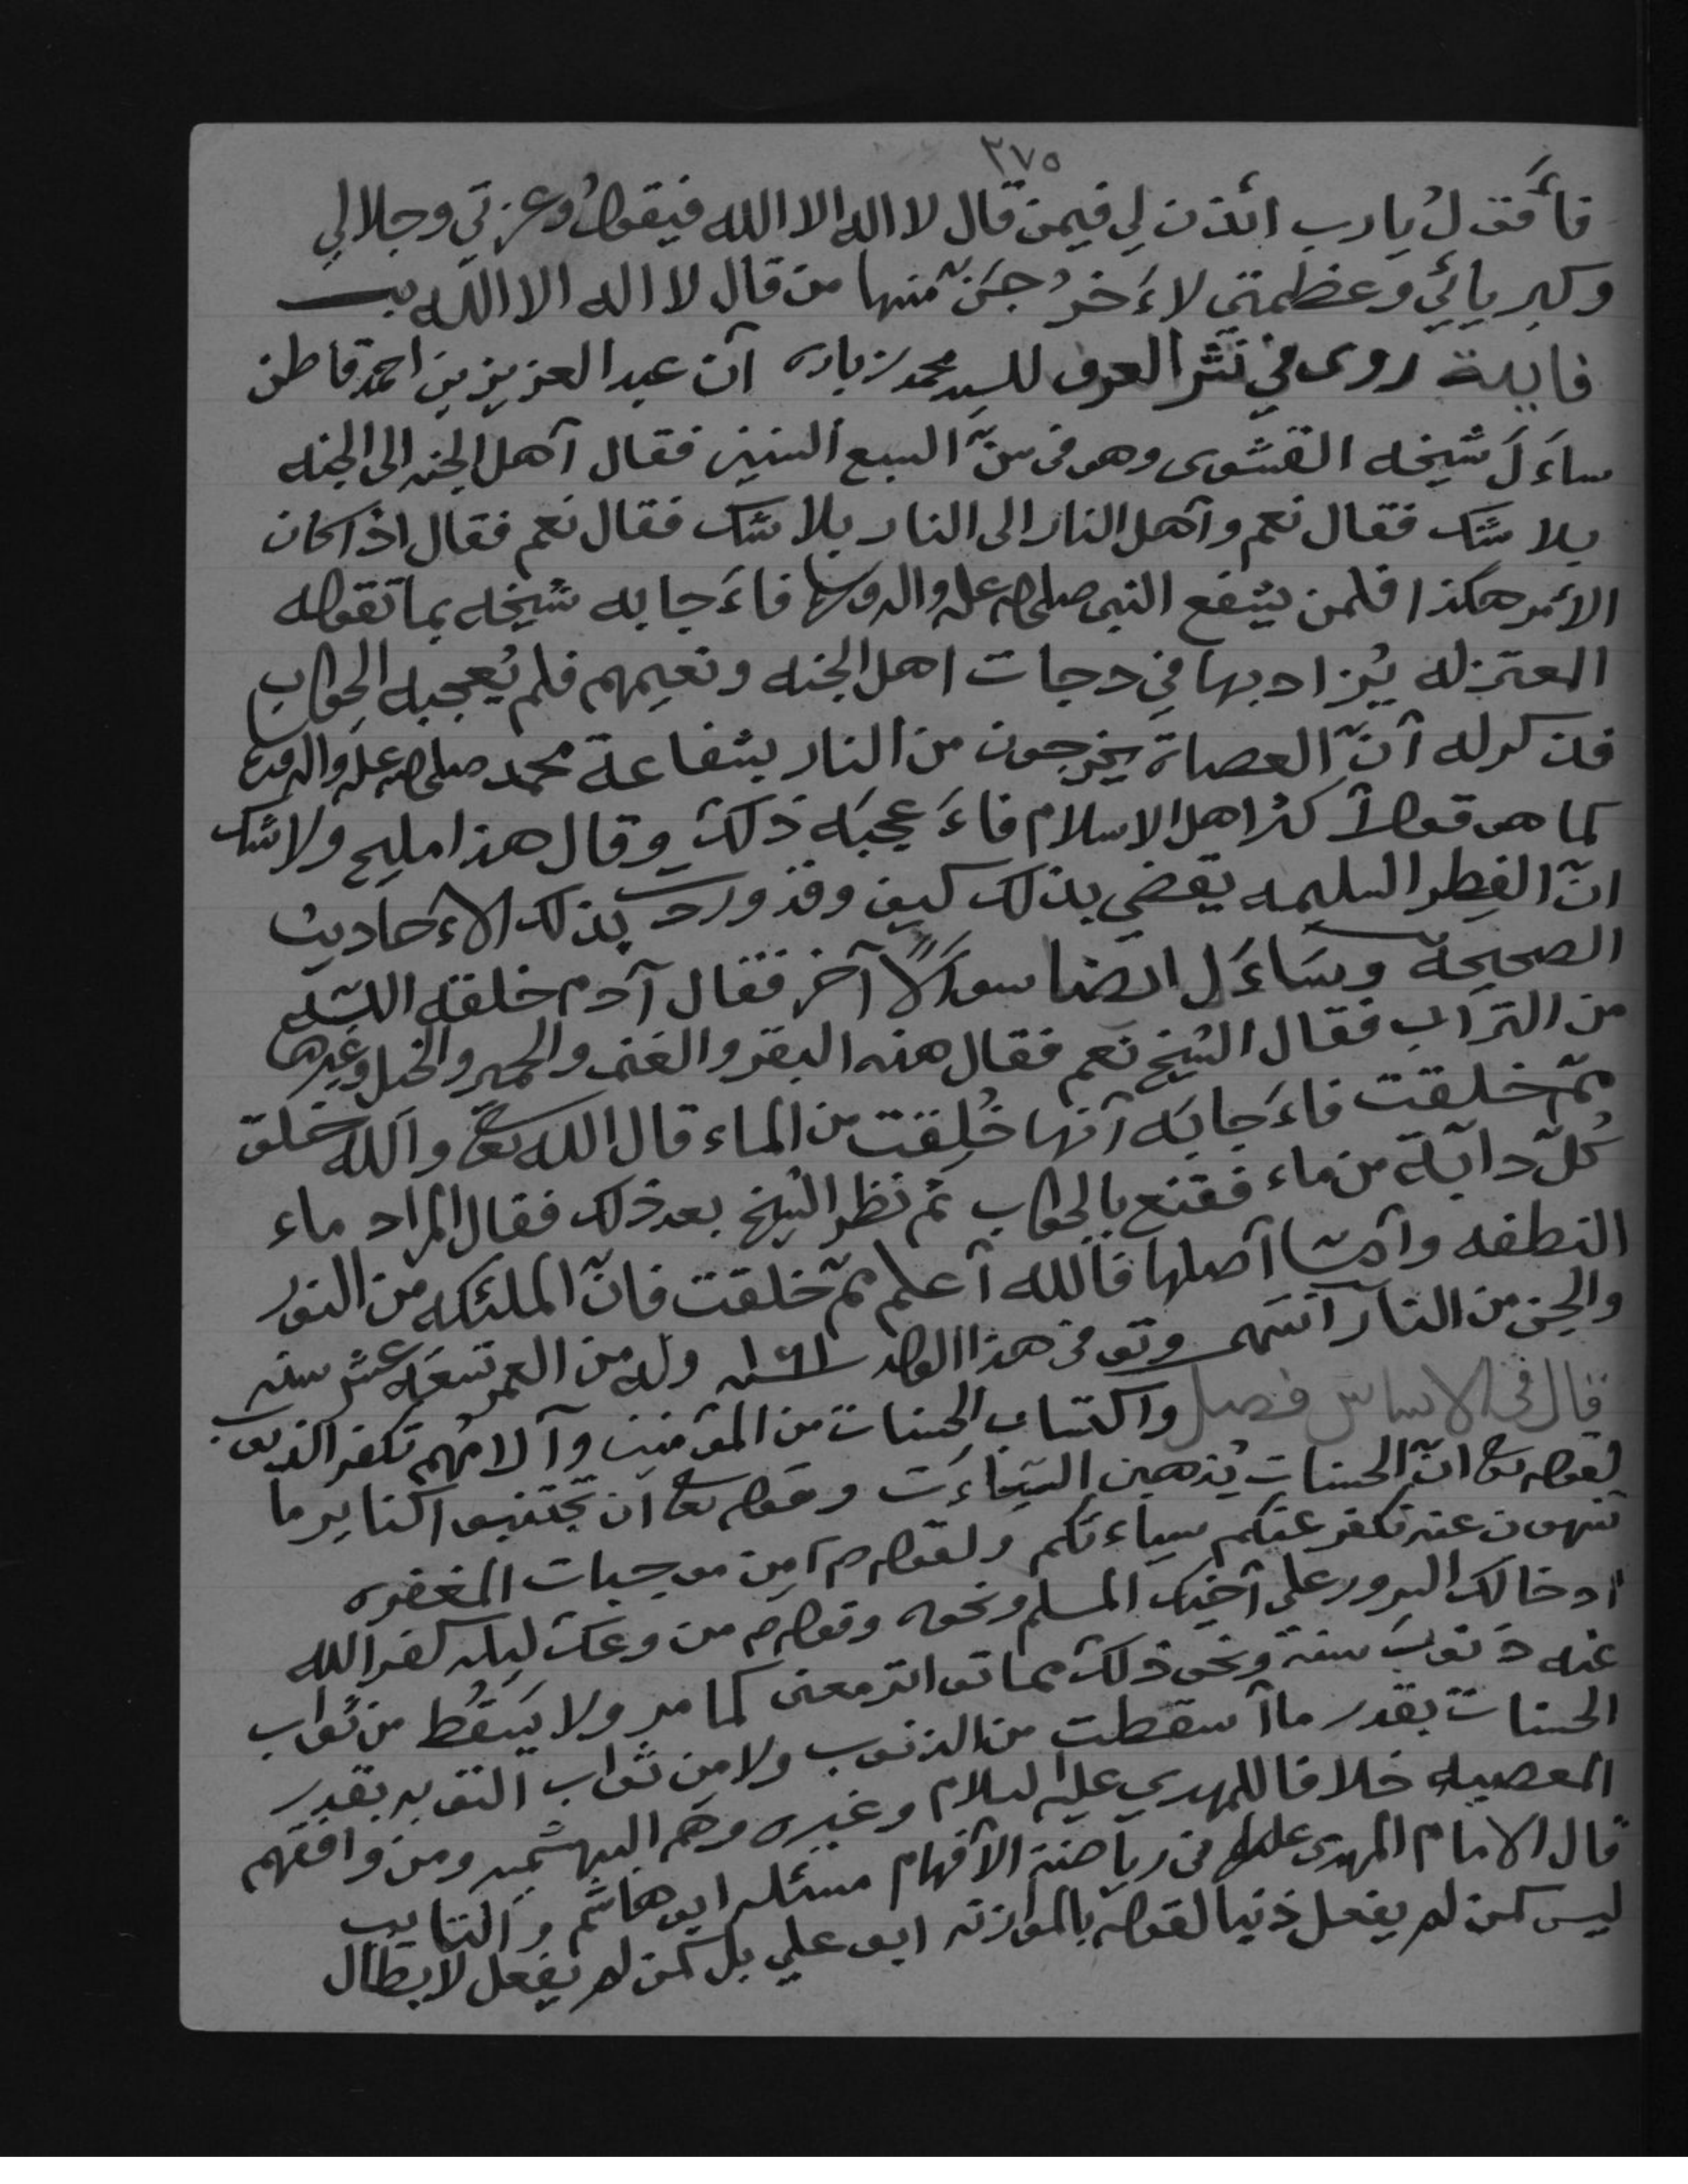 ٢٧٥
فأقول يارب ائذن لي فيمن قال لا اله الا الله فيقول وعزتي وجلالي
وكبريائي وعظمتي لاءَخرُجَنّ منها من قال لا اله الا الله
فايدة روى في نشر العرف للسيد محمد زباره آن عبد العزيز بن احمد قاطن
ساءَلَ شيخه القشوى وهو في سنّ السبع السنين فقال آهل الجنه الى الجنه
بلا شك فقال نعم وآهل النار الى النار بلا شك فقال نعم فقال اذا كان
الأمر هكذا فلمن يشفع النبى صلى الله عليه واله وسلم فاءَجابه شيخه بما تقوله
المعتزله يُزاد بها في دجات اهل الجنه ونعيمهم فلم يُعجبه الجواب
فذكر له آنّ العصاة يخرجون من النار بشفاعة محمد صلى الله عليه واله وسلم
كما هو قول آكثر اهل الاسلام فاءَعجبَه ذلك وقال هذا مليح ولاشك
انّ الفِطر السليمه تقضي بذلك كيف وقد وردت بذلك الاءحاديث
الصحيحة وسَاءَل ايضا سوآلاً آخر فقال آدم خلقه الله
من التراب فقال الشيخ نعم فقال هذه البقر والغنم والحمير والخيل وغيرها
ممّ خلقت فاءَجابَه آنها خُلِقت من الماء قال الله تعالى والله خلق
كُلّ دابّة من ماء فقنع بالجواب ثم نظر الشيخ بعد ذلك فقال المراد ماء
النطفه وآمّا آصلها فالله آعلم ممّ خلقت فانّ الملئكه من النور
والجن من النار انتهى وتوفى هذا الولد وله من العمر تسعَه عشر سنه
قال في الاساس فصل واكتساب الحسنات من المؤمنين وآلامُهم تكفر الذنوب
لقوله تعالى انّ الحسنات يُذهبن السيّاءت وقوله تعالى ان تجتنبوا كباير ما
تنهون عنه نكفر عنكم سياءتكم ولقوله ص آمن موجبات المغفره
ادخالك السرور على آخيك المسلم ونحوه وقوله ص من وعك ليله كفر الله
عنه ذنوب سنة ونحو ذلك مما تواتر معنى كما مر ولا يَسقُط من ثواب
الحسنات بقدر ما آسقطت من الذنوب ولا من ثواب التوبه بقدر
المعصيه خلافا للمهدي عليه السلام وغيره وهم البهشميه ومن وافقهم
قال الامام المهدى عليلم في رياضة الآفهام مسئله ابو هاشم والتايب
ليس كمن لم يفعل ذنبا لقوله بالموازنه ابو علي بل كمن لم يفعل لابطال